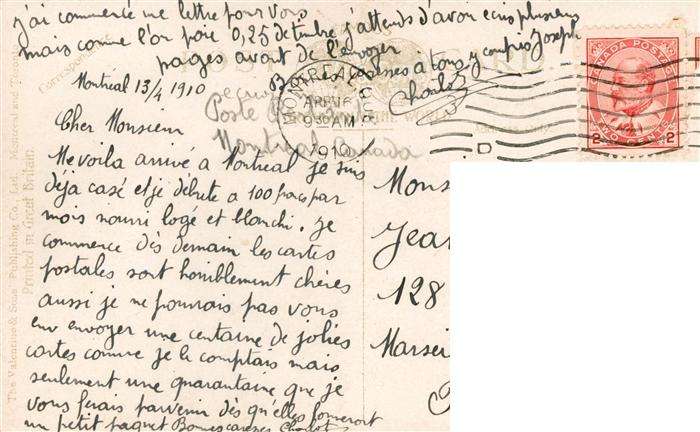 j'ai commencé une lettre pour vous
mais comme l'on paie 0,25 de timbre j'attends d'avoir écris plusieurs
pages avant de l'envoyer
Bonnes caresses à tous y compris Joseph
Charlot
Montréal 13/4 1910
Poste
Montreal Canada
MONTREAL
APR 16
1910
CANADA POSTAGE
2 2
TWO CENTS
Cher Monsieur
Me voila arrivé à Montréal je suis
déja casé et je débute a 100 francs par
mois nourri logé et blanchi. Je
commence dès demain les cartes
postales sont horriblement chères
aussi je ne pourrais pas vous
env envoyer une centaine de jolies
cartes comme je le comptais mais
seulement une quarantaine que je
vous ferais parvenir dès qu'elles formeront
un petit paquet Bonnes caresses Charlot
Mons
Jean
128
Marsei
The Valentine & Sons' Publishing Co., Ltd.
Printed in Great Britain.